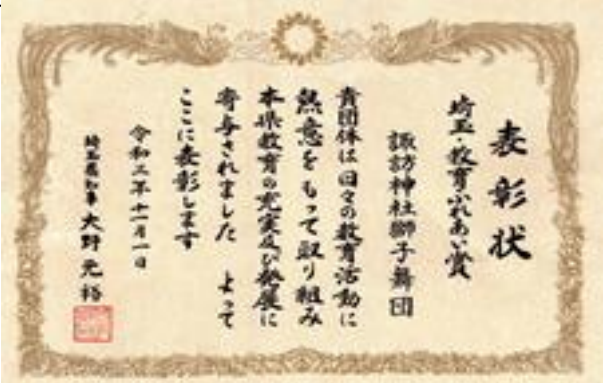 表彰状
埼玉・教育ふれあい賞
諏訪神社獅子舞団
貴団体は日々の教育活動に
熱意をもって取り組み
本県教育の充実及び発展に
寄与されました よって
ここに表彰します
令和三年十一月一日
埼玉県知事 大野元裕